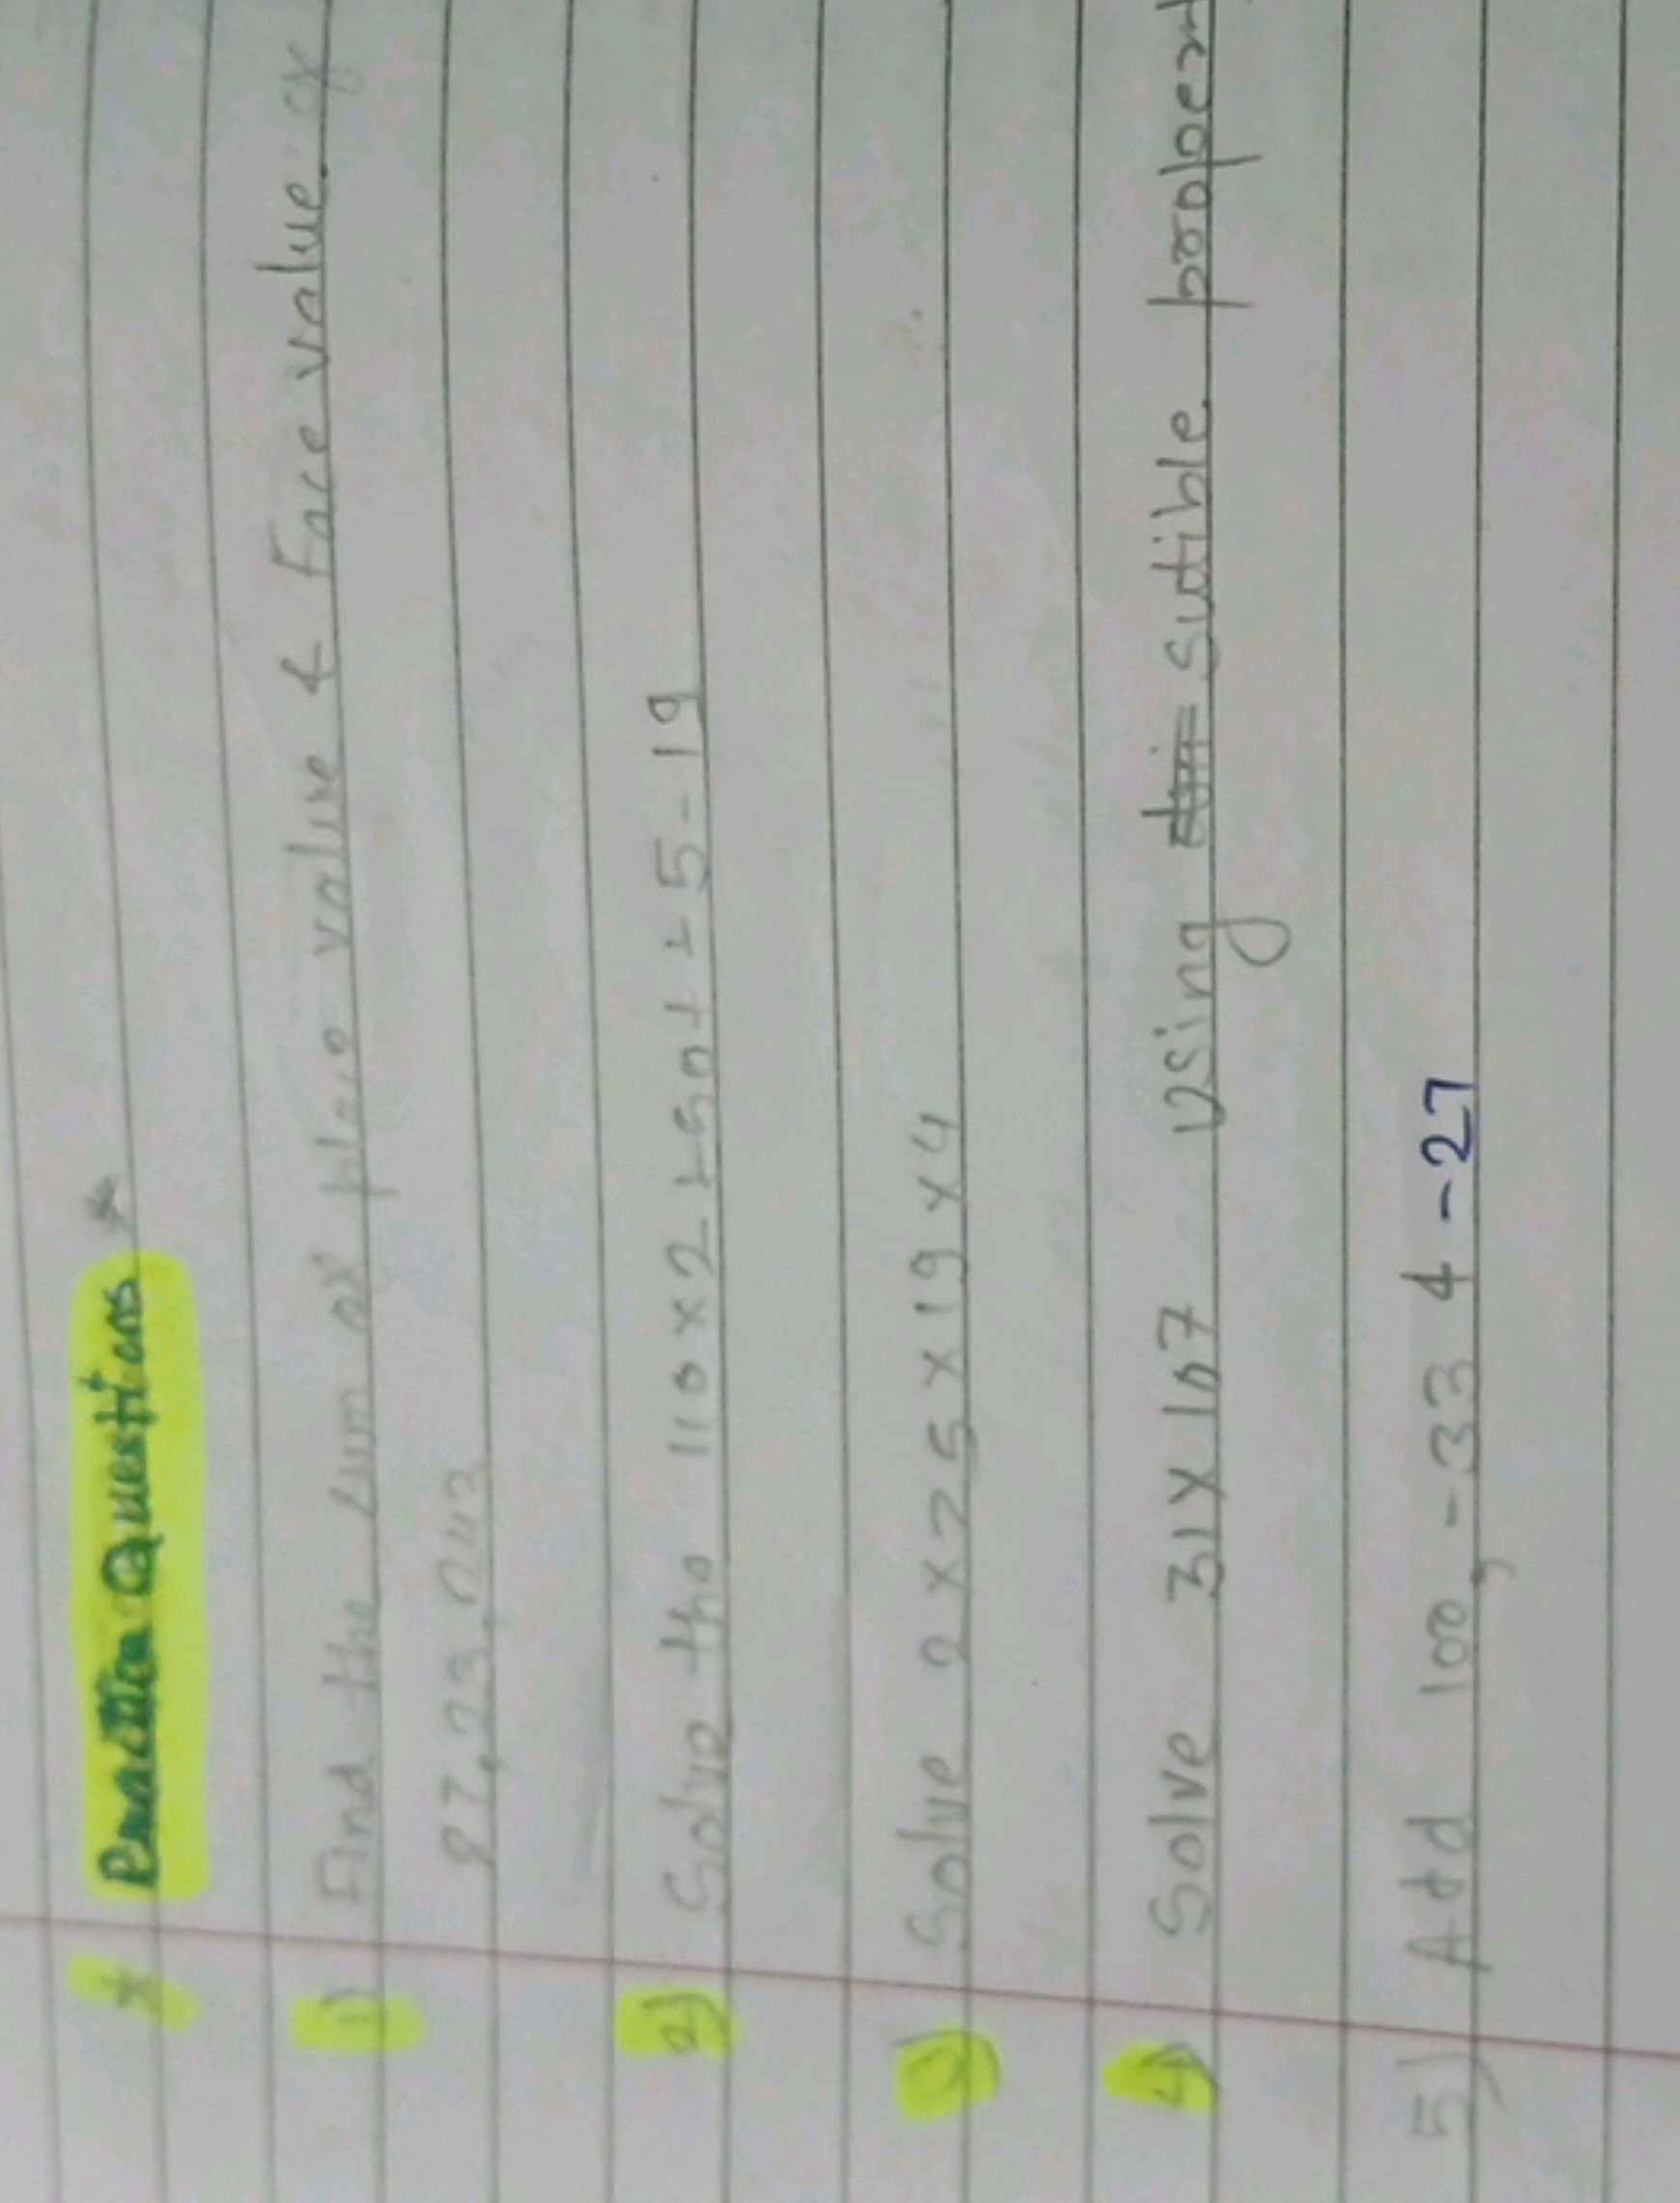 * Practice Questions *
1) Find the sum of place value & Face value of
97,23,043
2) Solve the 110 x 2 + 50 + + 5 - 19
3) Solve 2 x 25 x 19 x 4
4) Solve 31 x 107 using sutible propert
5) Add 100, -33 & -27